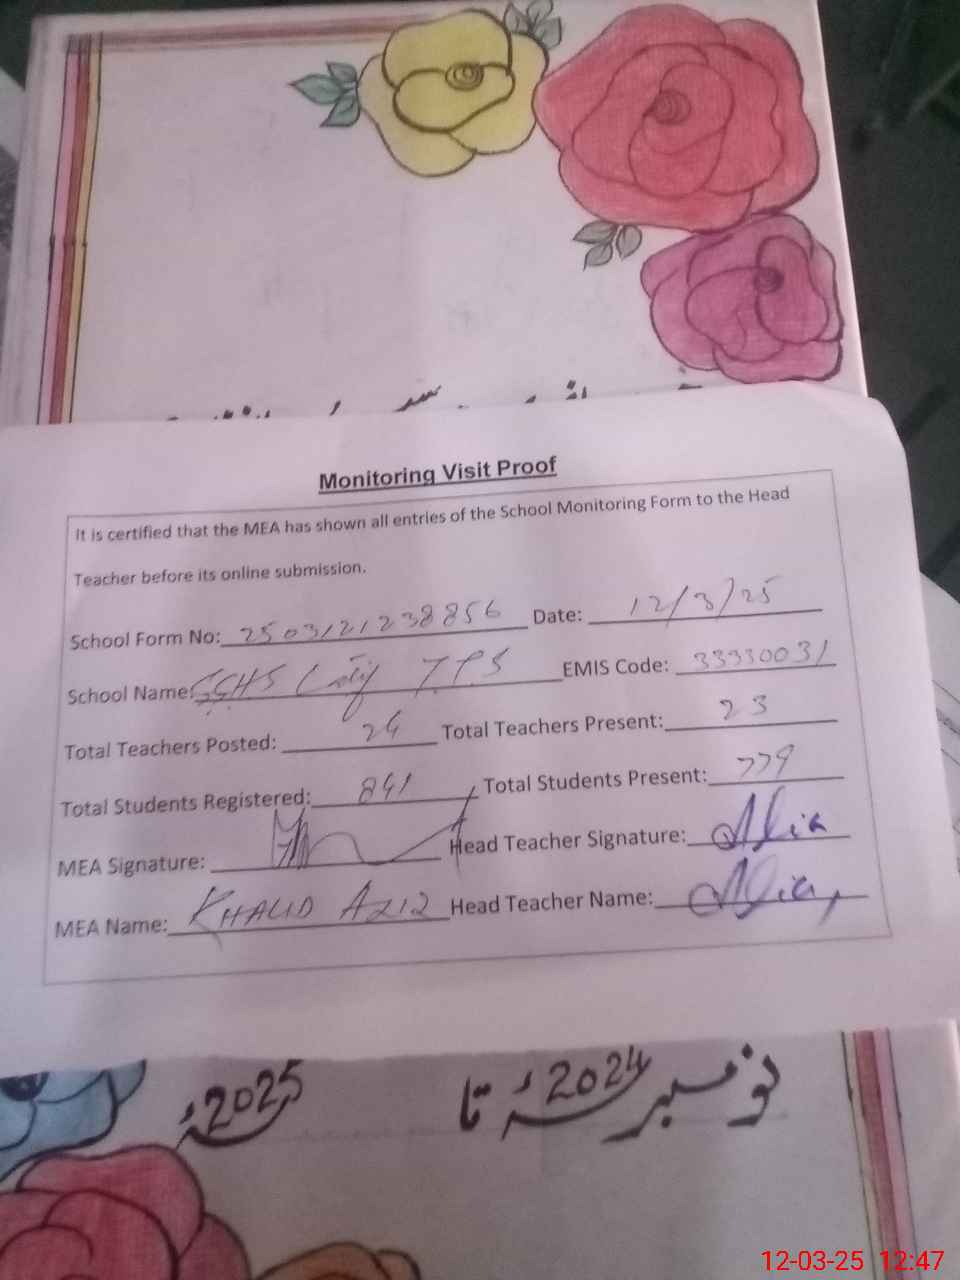 Monitoring Visit Proof
It is certified that the MEA has shown all entries of the School Monitoring Form to the Head
Teacher before its online submission.
School Form No: 2503121238856 Date: 12/3/25
School Name: GGHS City T.T.S EMIS Code: 33330031
Total Teachers Posted: 24 Total Teachers Present: 23
Total Students Registered: 841 Total Students Present: 779
MEA Signature: Head Teacher Signature: Alia
MEA Name: KHALID AZIZ Head Teacher Name: Alia
نومبر 2024ء تا 2025ء
12-03-25 12:47